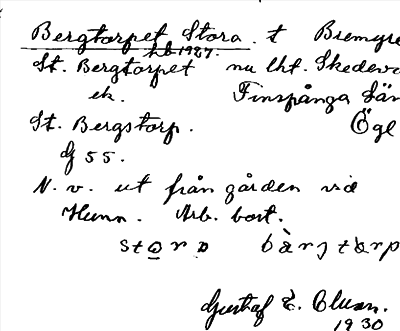 Bergtorpet Stora. t Bremgre
hb 1927.
St. Bergtorpet nu lht. Skedev
ek. Finspånga Län
St. Bergstorp. Ögl
G 55.
N. v. ut från gården vid
Hunn. Arb. bost.
Gustaf E. Cluzn.
1930